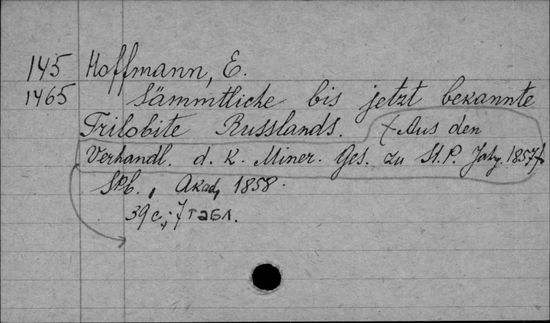 145 Hoffmann, E.
1465 Sämmtliche bis jetzt bekannte
Trilobite Russlands. (Aus den
Verhandl. d. k. Miner. Ges. zu St. P. Jahg. 1857)
Spb., Akad, 1858.
39 с.; 7 табл.